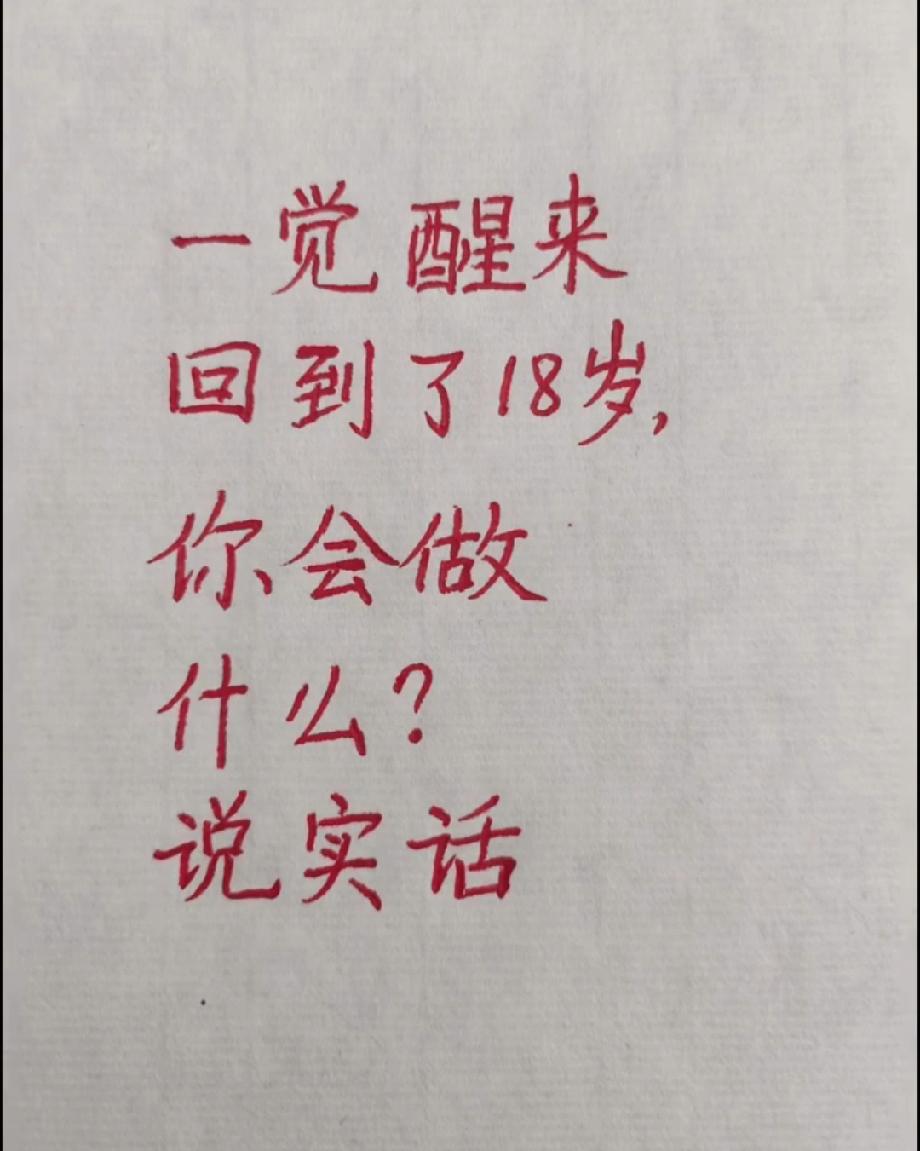 一觉醒来
回到了18岁,
你会做
什么?
说实话